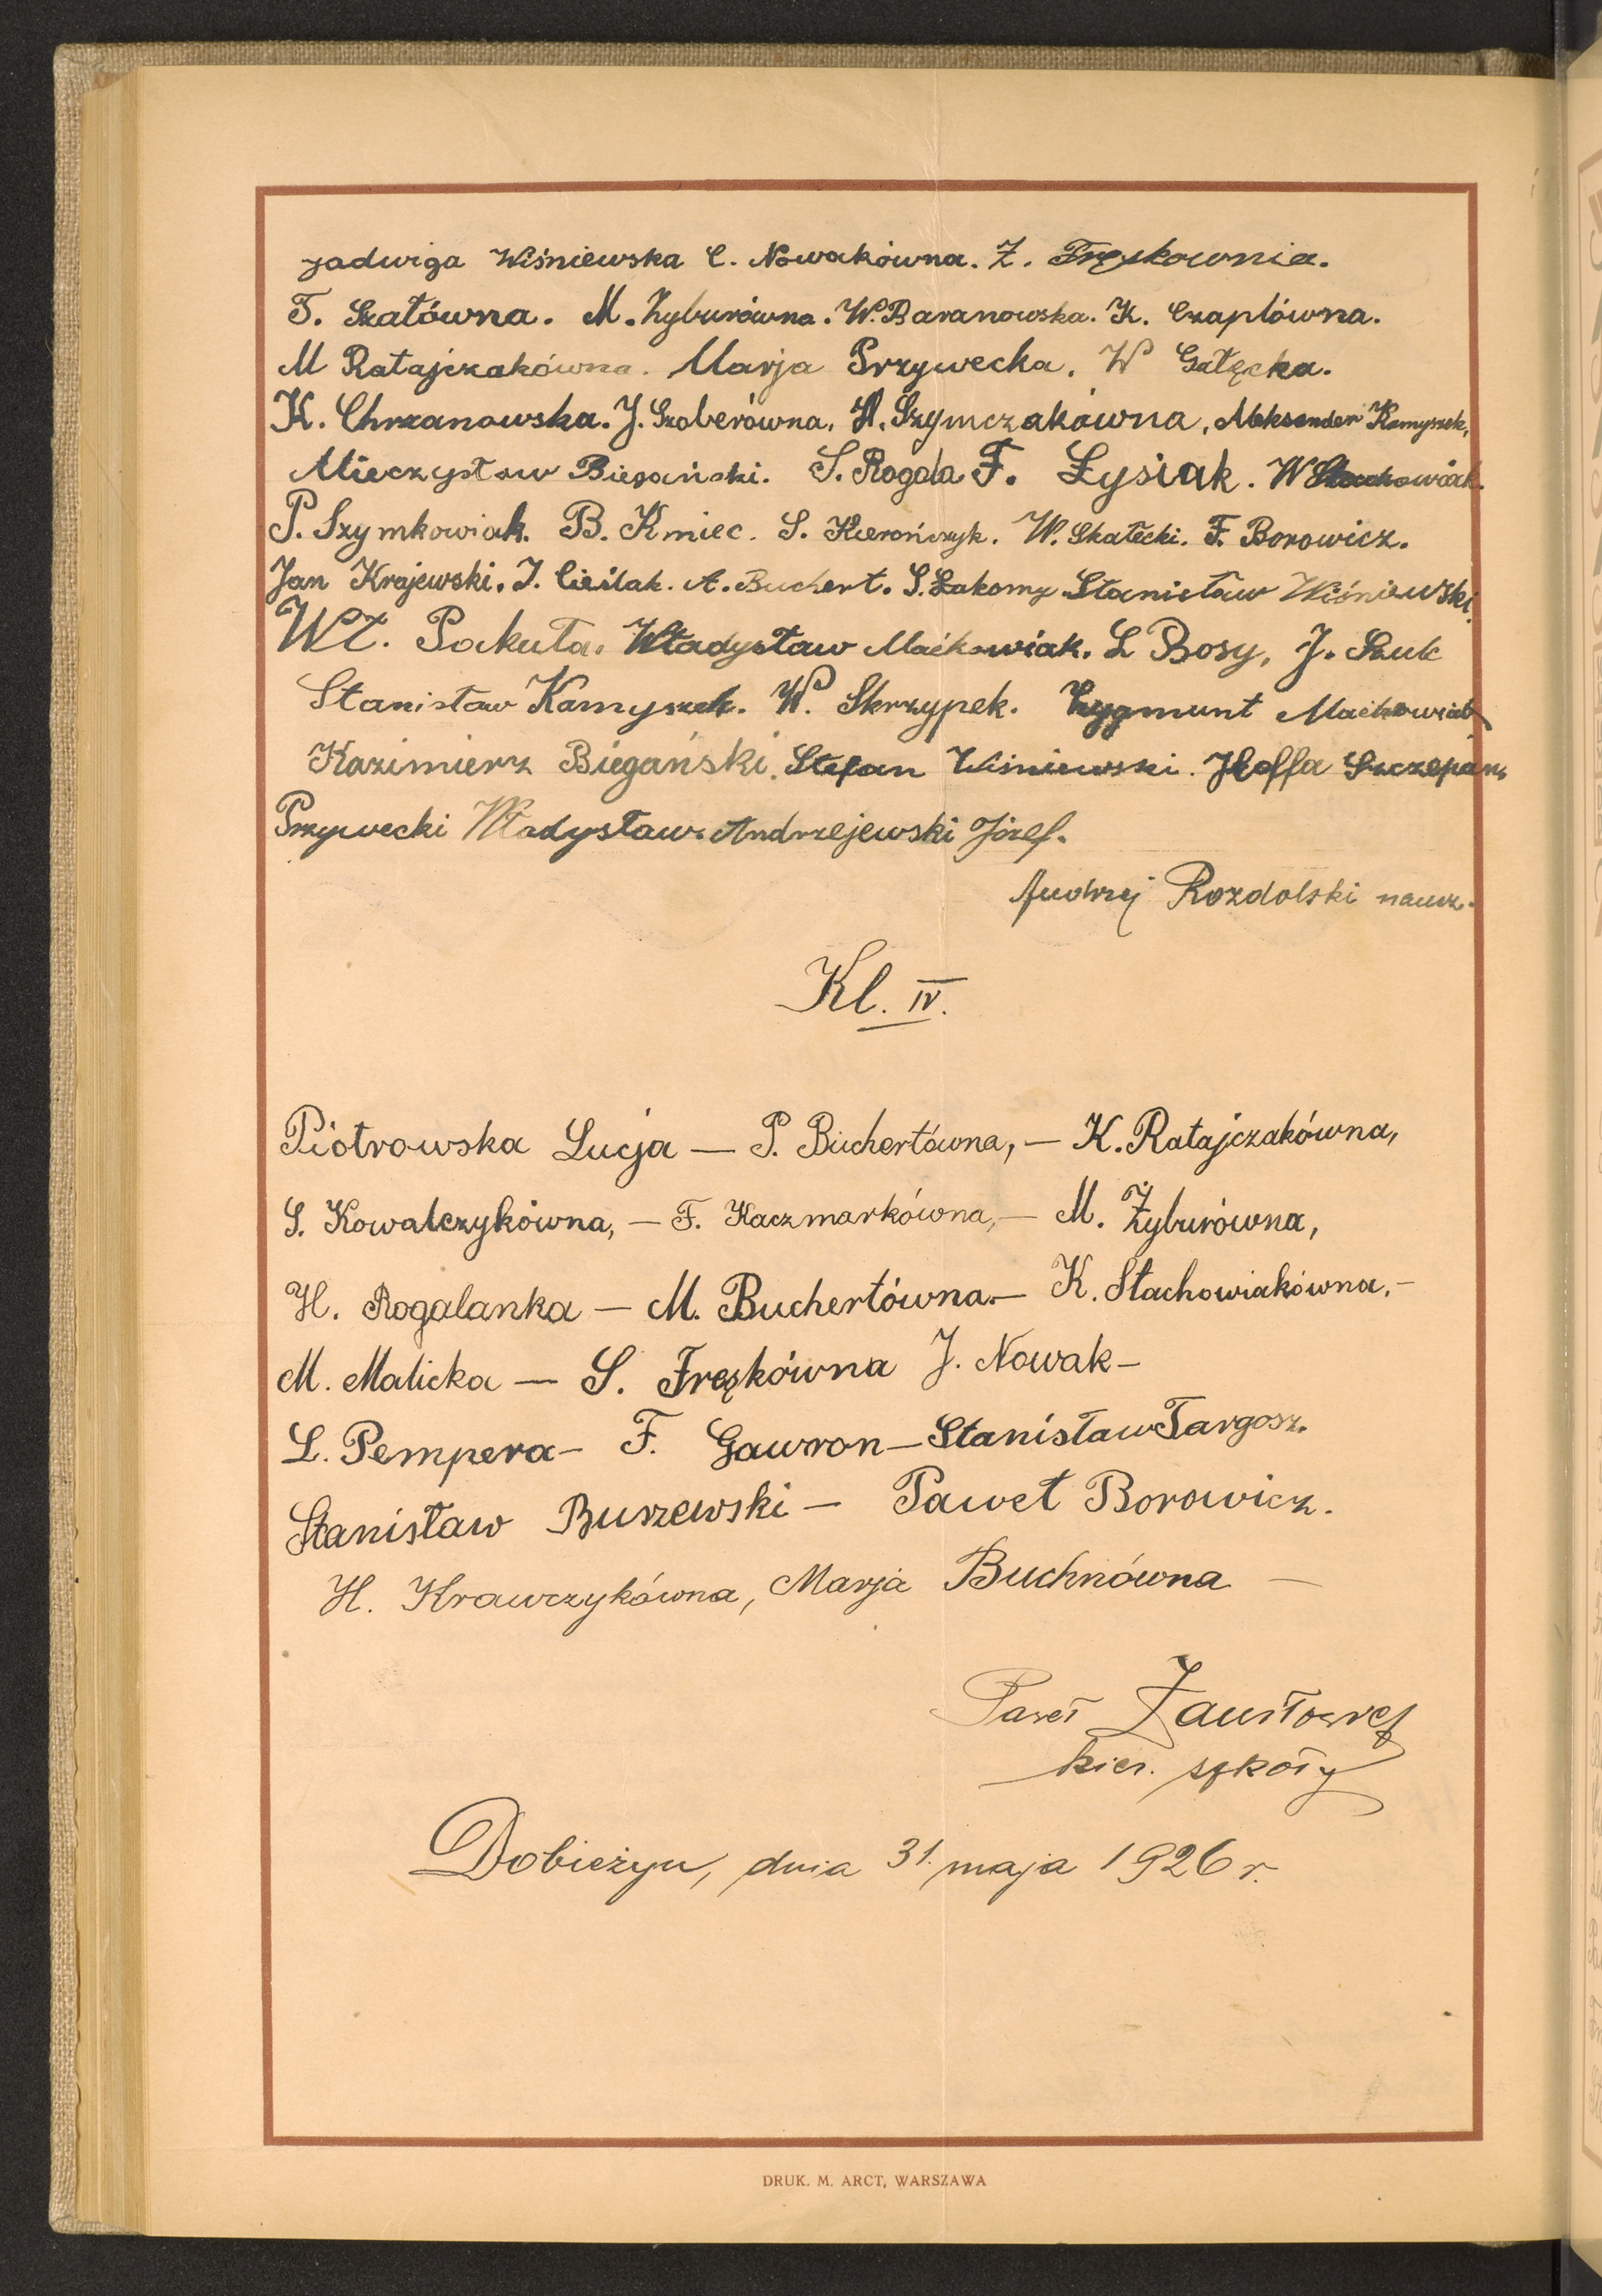 Jadwiga Wiśniewska C. Nowakówna. Z. Fręskownia.
T. Szatówna. M. Żyburówna. W. Baranowska. K. Czaplówna.
M Ratajczakówna. Marja Przywecka. W Gałęcka.
K. Chrzanowska. J. Szoberówna. H. Szymczakówna, Aleksander Kamyszek,
Mieczysław Biegański. S. Rogala F. Łysiak. W Stachowiak.
P. Szymkowiak. B. Kmiec. S. Kierończyk. W. Skałecki. F. Borowicz.
Jan Krajewski. J. Cieślak. A. Buchert. S. Łakomy Stanisław Wiśniewski
Wł. Pakuła. Władysław Maćkowiak. L Bosy, J. Szulc
Stanisław Kamyszek. W. Skrzypek. Zygmunt Maćkowiak
Kazimierz Biegański. Stefan Wiśniewski. Hoffa Szczepan,
Przywecki Władysław. Andrzejewski Józef.
Andrzej Rozdolski naucz.
Kl. IV.
Piotrowska Łucja — P. Buchertówna, — K. Ratajczakówna,
S. Kowalczykówna, — F. Kaczmarkówna, — M. Żyburówna,
H. Rogalanka — M. Buchertówna — K. Stachowiakówna. —
M. Malicka — S. Fręśkówna J. Nowak —
L. Pempera — F. Gawron — Stanisław Targosz.
Stanisław Burzewski — Paweł Borowicz.
H. Krawczykówna, Marja Buchnówna —
Paweł
kier. szkoły
Dobieżyn, dnia 31. maja 1926 r.
DRUK. M. ARCT, WARSZAWA